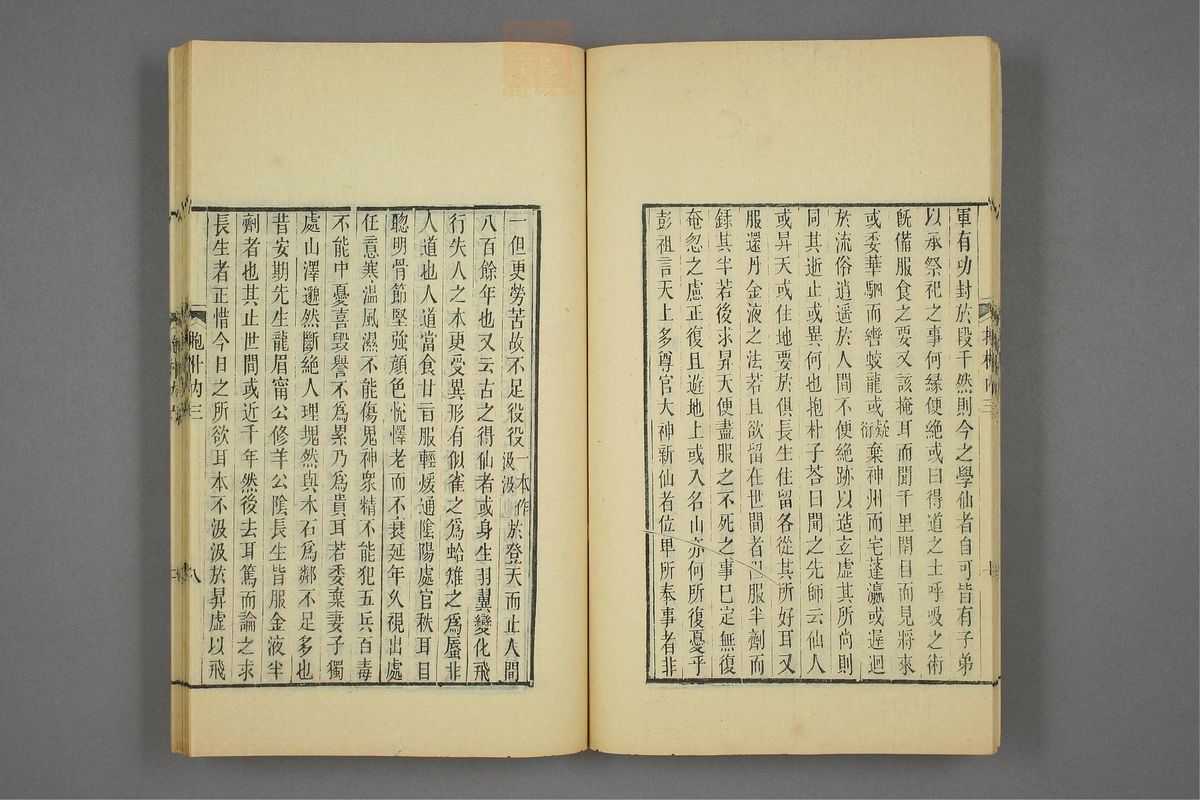 軍有功封於段干然則今之學仙者自可皆有子弟
以承祭祀之事何緣便絶或曰得道之士呼吸之術
旣備服食之要又該掩耳而聞千里閉目而見將來
或委華駟而轡蛟龍或疑衍棄神州而宅蓬瀛或遲迴
於流俗逍遥於人間不便絶跡以造玄虛其所尚則
同其逝止或異何也抱朴子荅曰聞之先師云仙人
或昇天或住地要於俱長生住留各從其所好耳又
服還丹金液之法若且欲留在世間者但服半劑而
録其半若後求昇天便盡服之不死之事已定無復
奄忽之慮正復且遊地上或入名山亦何所復憂乎
彭祖言天上多尊官大神新仙者位卑所奉事者非
抱朴内三
七
一但更勞苦故不足役役一本作汲汲於登天而止人間
八百餘年也又云古之得仙者或身生羽翼變化飛
行失人之本更受異形有似雀之爲蛤雉之爲蜃非
人道也人道當食甘旨服輕煖通陰陽處官秩耳目
聰明骨節堅強顔色悅懌老而不衰延年久視出處
任意寒温風濕不能傷鬼神衆精不能犯五兵百毒
不能中憂喜毀譽不爲累乃爲貴耳若委棄妻子獨
處山澤邈然斷絶人理塊然與木石爲鄰不足多也
昔安期先生龍眉甯公修羊公陰長生皆服金液半
劑者也其止世間或近千年然後去耳篤而論之求
長生者正惜今日之所欲耳本不汲汲於昇虛以飛
抱朴内三
八